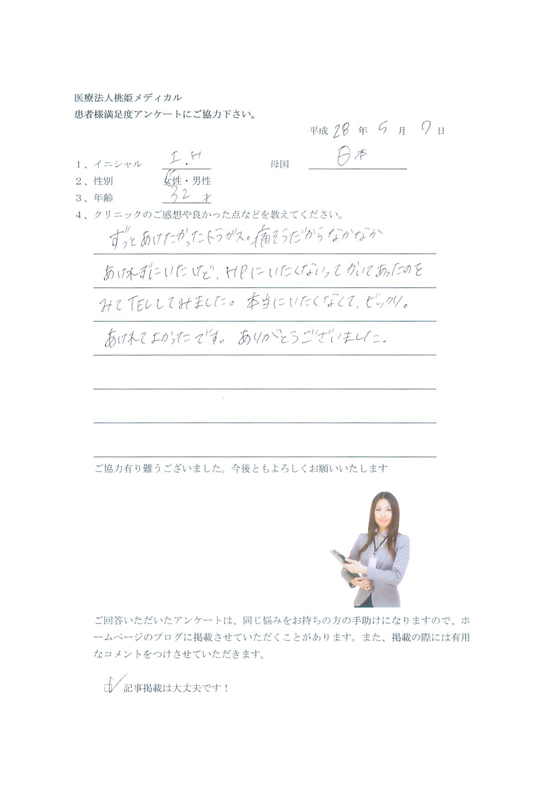 医療法人桃姫メディカル
患者様満足度アンケートにご協力下さい。
平成 28 年 5 月 7 日
1、イニシャル I.H 母国 日本
2、性別 女性・男性
3、年齢 32 才
4、クリニックのご感想や良かった点などを教えてください。
ずっとあけたかったトラガス。痛そうだからなかなか
あけれずにいたけど、HPにいたくないってかいてあったのを
みてTELしてみました。本当にいたくなくて、ビックリ。
あけれてよかったです。ありがとうございました。
ご協力有り難うございました。今後ともよろしくお願いいたします
ご回答いただいたアンケートは、同じ悩みをお持ちの方の手助けになりますので、ホ
ームページのブログに掲載させていただくことがあります。また、掲載の際には有用
なコメントをつけさせていただきます。
記事掲載は大丈夫です！